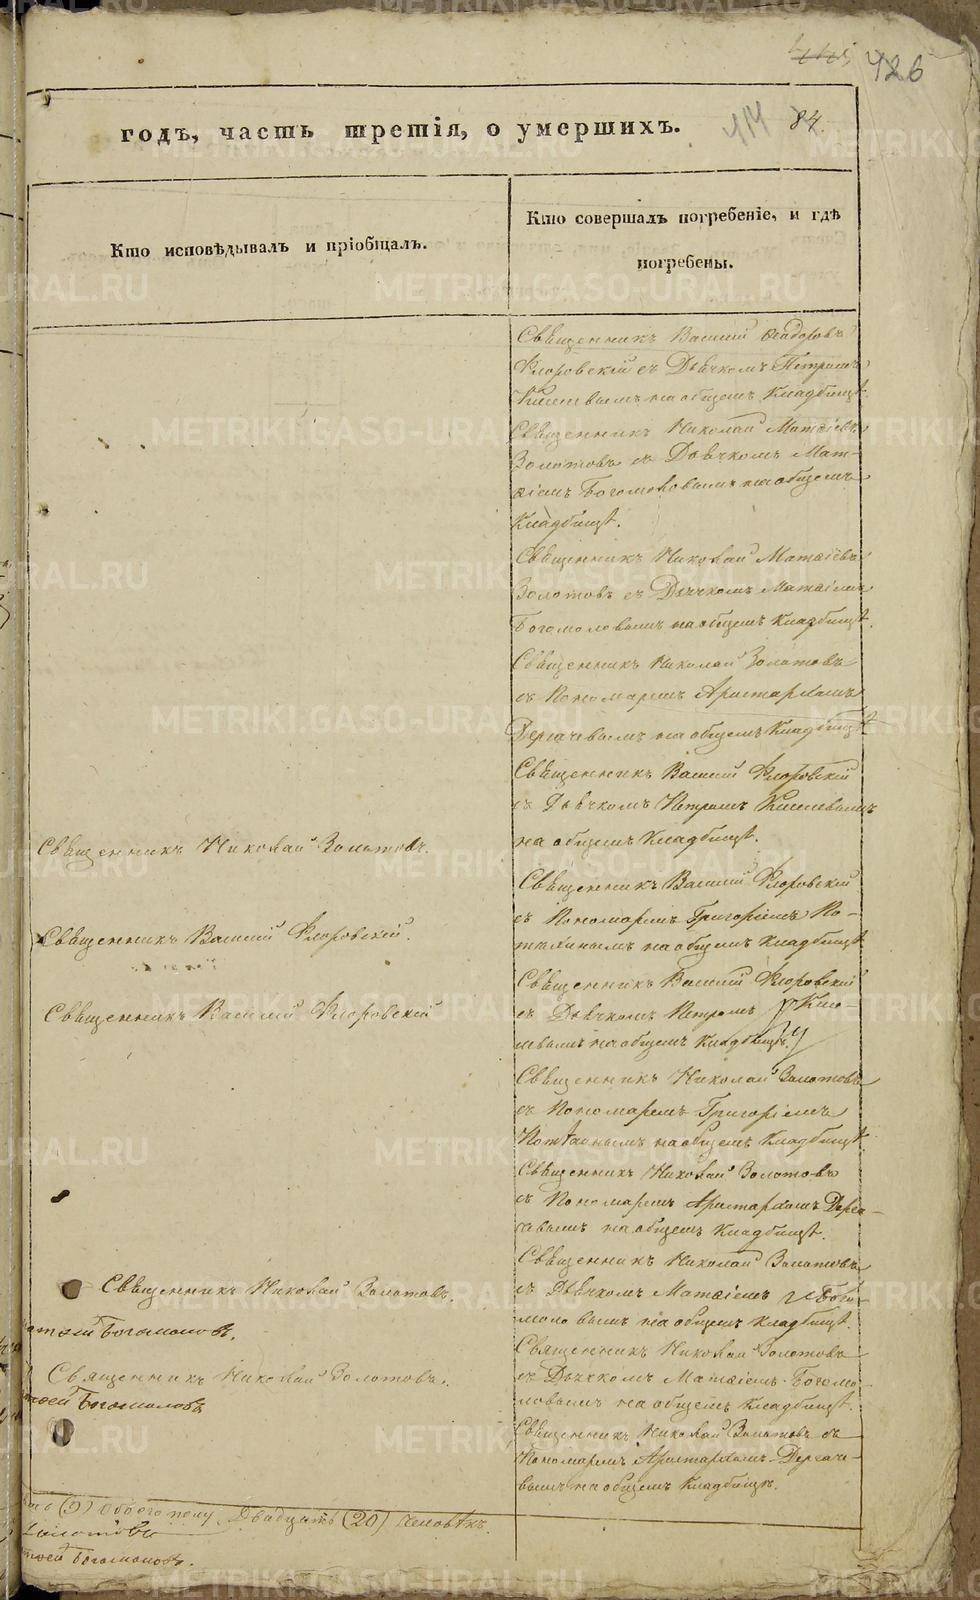 426
84.
114
годъ, часть третія, о умершихъ.
Кто исповѣдывалъ и пріобщалъ.
Кто совершалъ погребеніе, и гдѣ
погребены.
Священникъ Василій Ѳеодоровъ
Флоровскій съ Дьячкомъ Петромъ
Киселевымъ на общемъ Кладбищѣ.
Священникъ Николай Матѳіевъ
Золотовъ съ Дьячкомъ Мат-
ѳіемъ Богомоловымъ на общемъ
Кладбищѣ.
Священникъ Николай Матѳіевъ
Золотовъ съ Дьячкомъ Матѳіемъ
Богомоловымъ на общемъ Кладбищѣ.
Священникъ Николай Золотовъ
съ Пономаремъ Аристархомъ
Дергачевымъ на общемъ Кладбищѣ
Священникъ Василій Флоровскій
съ Дьячкомъ Петромъ Киселевымъ
на общемъ Кладбищѣ.
Священникъ Николай Золотовъ.
Священникъ Василій Флоровскій
съ Пономаремъ Григоріемъ По-
на общемъ Кладбищѣ
Священникъ Василій Флоровскій.
Священникъ Василій Флоровскій
съ Дьячкомъ Петромъ Кисе-
левымъ на общемъ Кладбищѣ.
Священникъ Василій Флоровскій
Священникъ Николай Золотовъ
съ Пономаремъ Григоріемъ
на общемъ Кладбищѣ.
Священникъ Николай Золотовъ
съ Пономаремъ Аристархомъ Дерга-
чевымъ на общемъ Кладбищѣ.
Священникъ Николай Золотовъ
съ Дьячкомъ Матѳіемъ Бого-
моловымъ на общемъ Кладбищѣ.
Священникъ Николай Золотовъ.
Богомоловъ.
Священникъ Николай Золотовъ
съ Дьячкомъ Матѳіемъ Богомо-
ловымъ на общемъ Кладбищѣ.
Священникъ Николай Золотовъ.
Богомоловъ
Священникъ Николай Золотовъ съ
Пономаремъ Аристархомъ Дергаче-
вымъ на общемъ Кладбищѣ.
(9) Обоего полу Двадцать (20) человѣкъ.
Золотовъ
Богомоловъ.
METRIKI.GASO-URAL.RU